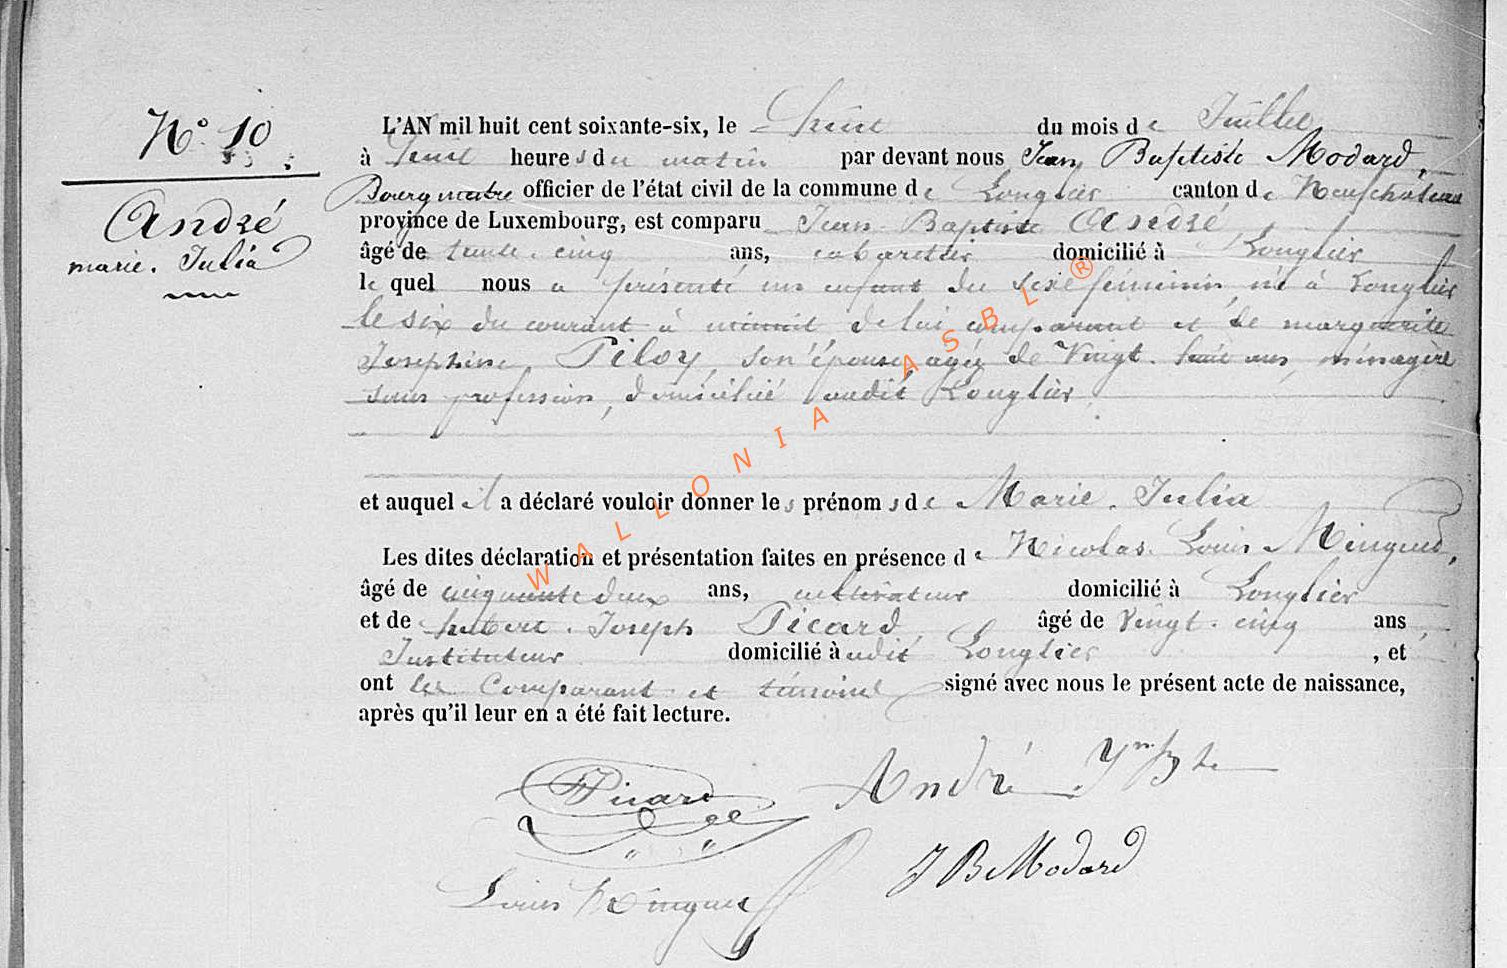 N° 10
André
marie. Julia
L'AN mil huit cent soixante-six, le huit du mois de Juillet
à huit heures du matin par devant nous Jean Baptiste Modard,
Bourgmestre officier de l'état civil de la commune de Longlier canton de Neufchateau
province de Luxembourg, est comparu Jean Baptiste André,
âgé de trente. cinq ans, cabaretier domicilié à Longlier
le quel nous a présenté un enfant du sexe féminin, né à Longlier
le six du courant à minuit de lui comparant et de marguerite
Josephine Piloy, son épouse, agée de Vingt. huit ans, ménagère
sans profession, domicilié audit Longlier,
et auquel il a déclaré vouloir donner les prénoms de Marie. Julia
Les dites déclaration et présentation faites en présence de Nicolas. Louis Mingued,
âgé de cinquante deux ans, cultivateur domicilié à Longlier
et de hubert. Joseph Picard, âgé de Vingt. cinq ans,
Instituteur domicilié audit Longlier , et
ont les Comparant et témoins signé avec nous le présent acte de naissance,
après qu'il leur en a été fait lecture.
Picard André
J B Modard
Louis Mingued
WALLONIA ASBL ®